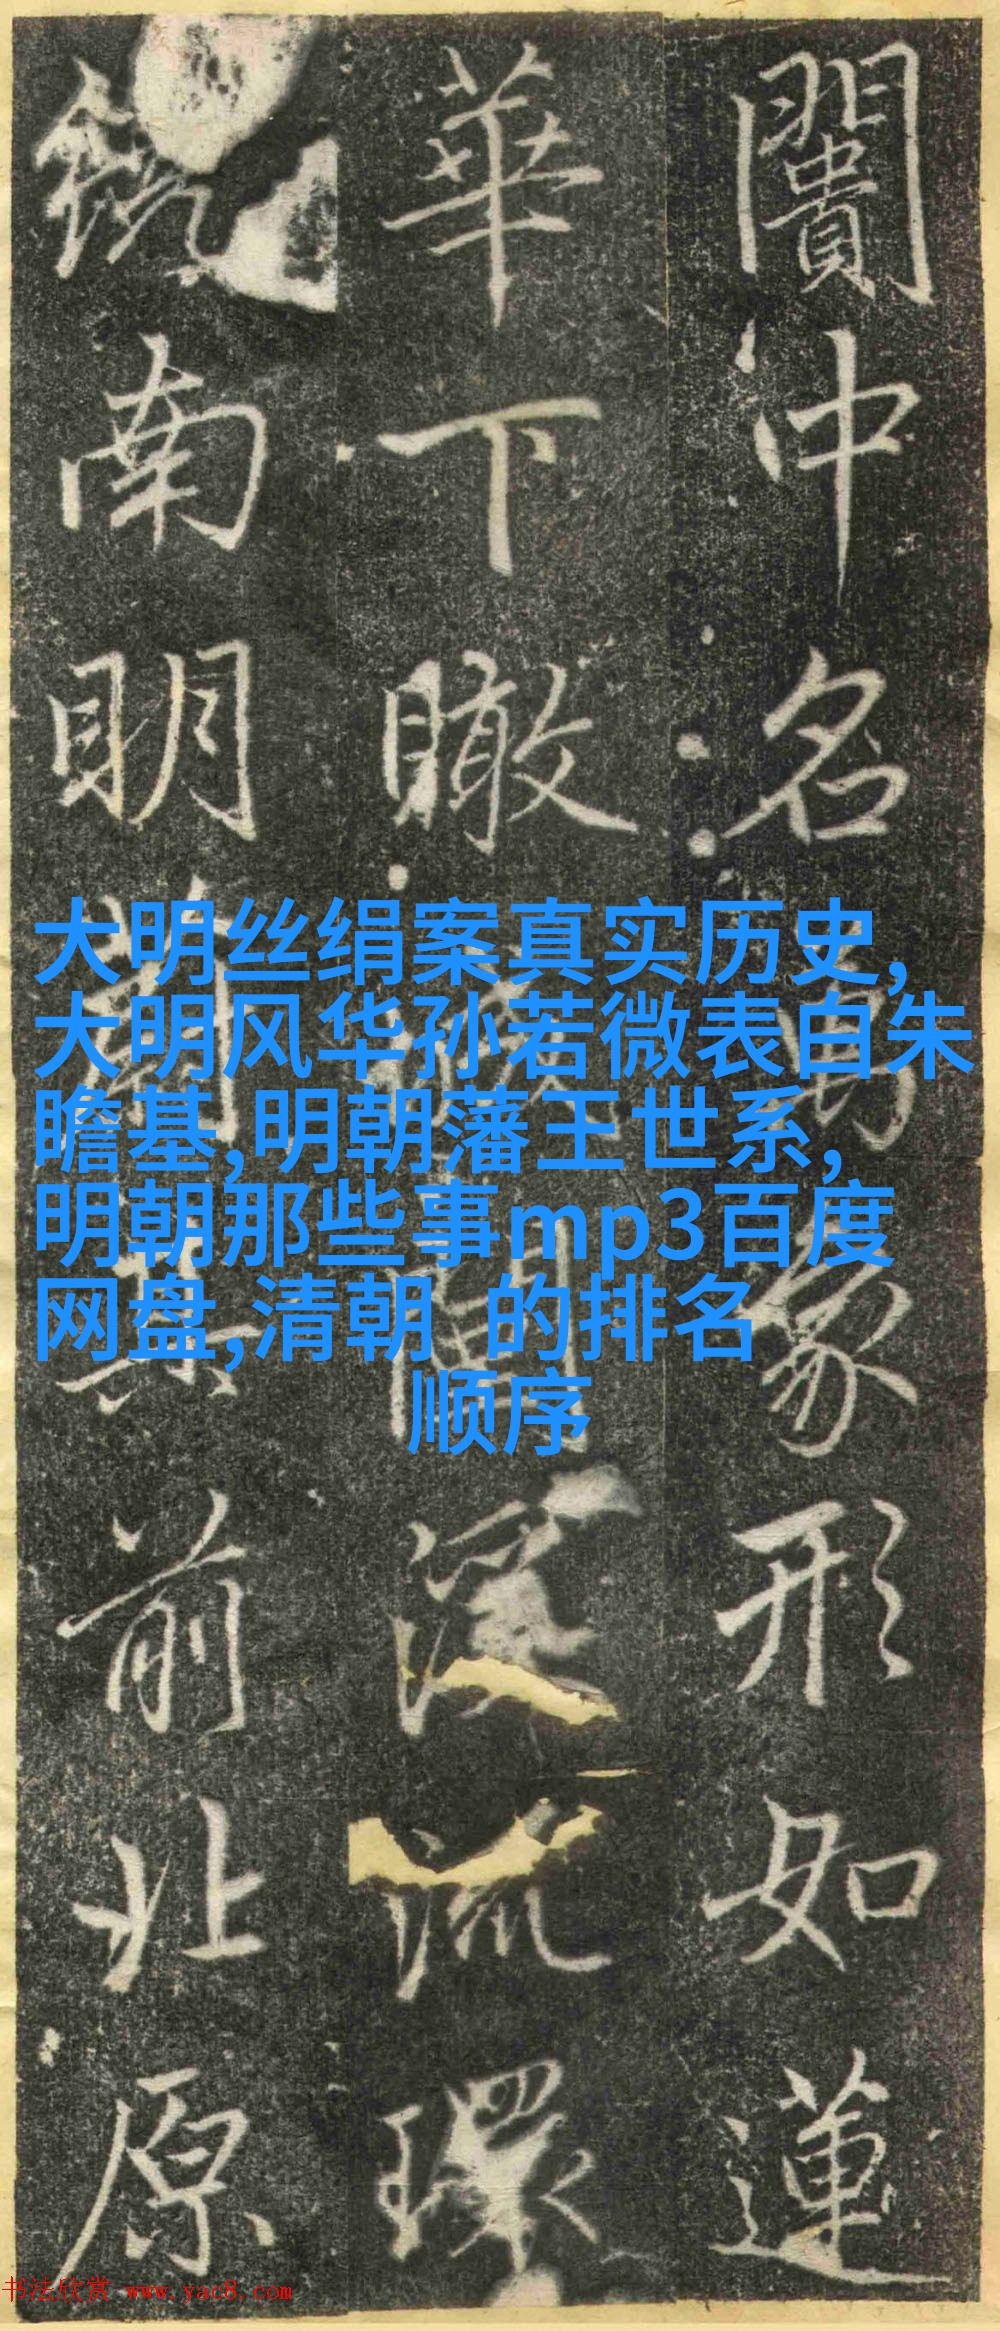 大明丝绢案真实历史,
大明风华孙若微表白朱
瞻基,明朝藩王世系,
明朝那些事mp3百度
网盘,清朝 的排名
顺序
闠中名象形如蓮
華下瞰深流環
南明前北原
书法欣赏 www.yac8.com